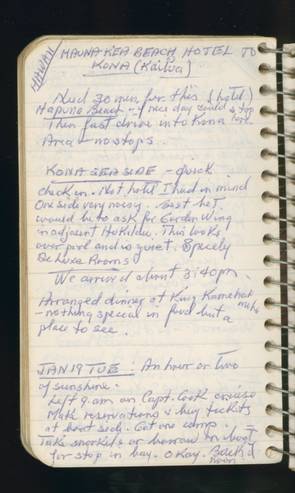 HAWAII
MAUNA KEA BEACH HOTEL TO
KONA (Kailua)
Need 30 min for this (hotel)
Hapuna Beach - Nice day could stop
Then fast drive into Kona here
Area - no stops.
KONA SEASIDE - quick
check in. Not hotel I had in mind
One side very noisy. Best bet
would be to ask for Garden Wing
in adjacent Hukilau. This looks
over pool and is quiet. Specify
De Luxe Rooms
We arrived about 3:40pm.
Arranged dinner at King Kameha-
meha
- nothing special in food but a
place to see.
JAN 19 TUE: An hour or two
of sunshine.
Left 9 am on Capt. Cook cruise
Make reservations & buy tickets
at boat side. Get one
Take snorkels or borrow on boat
for stop in bay. Okay. Back'd
noon